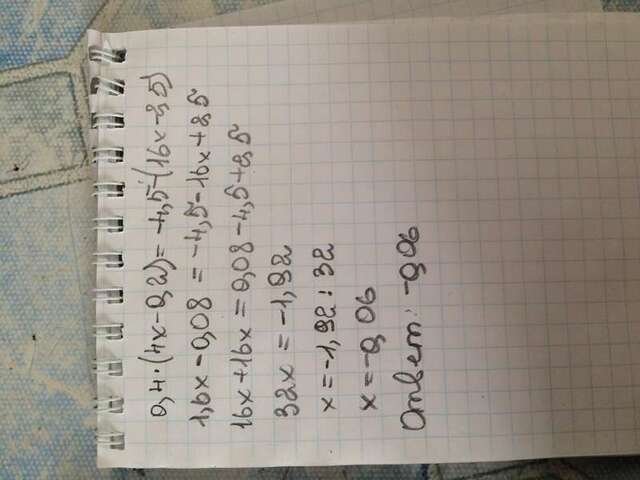 0,4·(4x-0,2)=-4,5-(16x-2,5)
1,6x-0,08=-4,5-16x+2,5
16x+16x=0,08-4,5+2,5
32x=-1,92
x=-1,92:32
x=-0,06
Ответ: -0,06